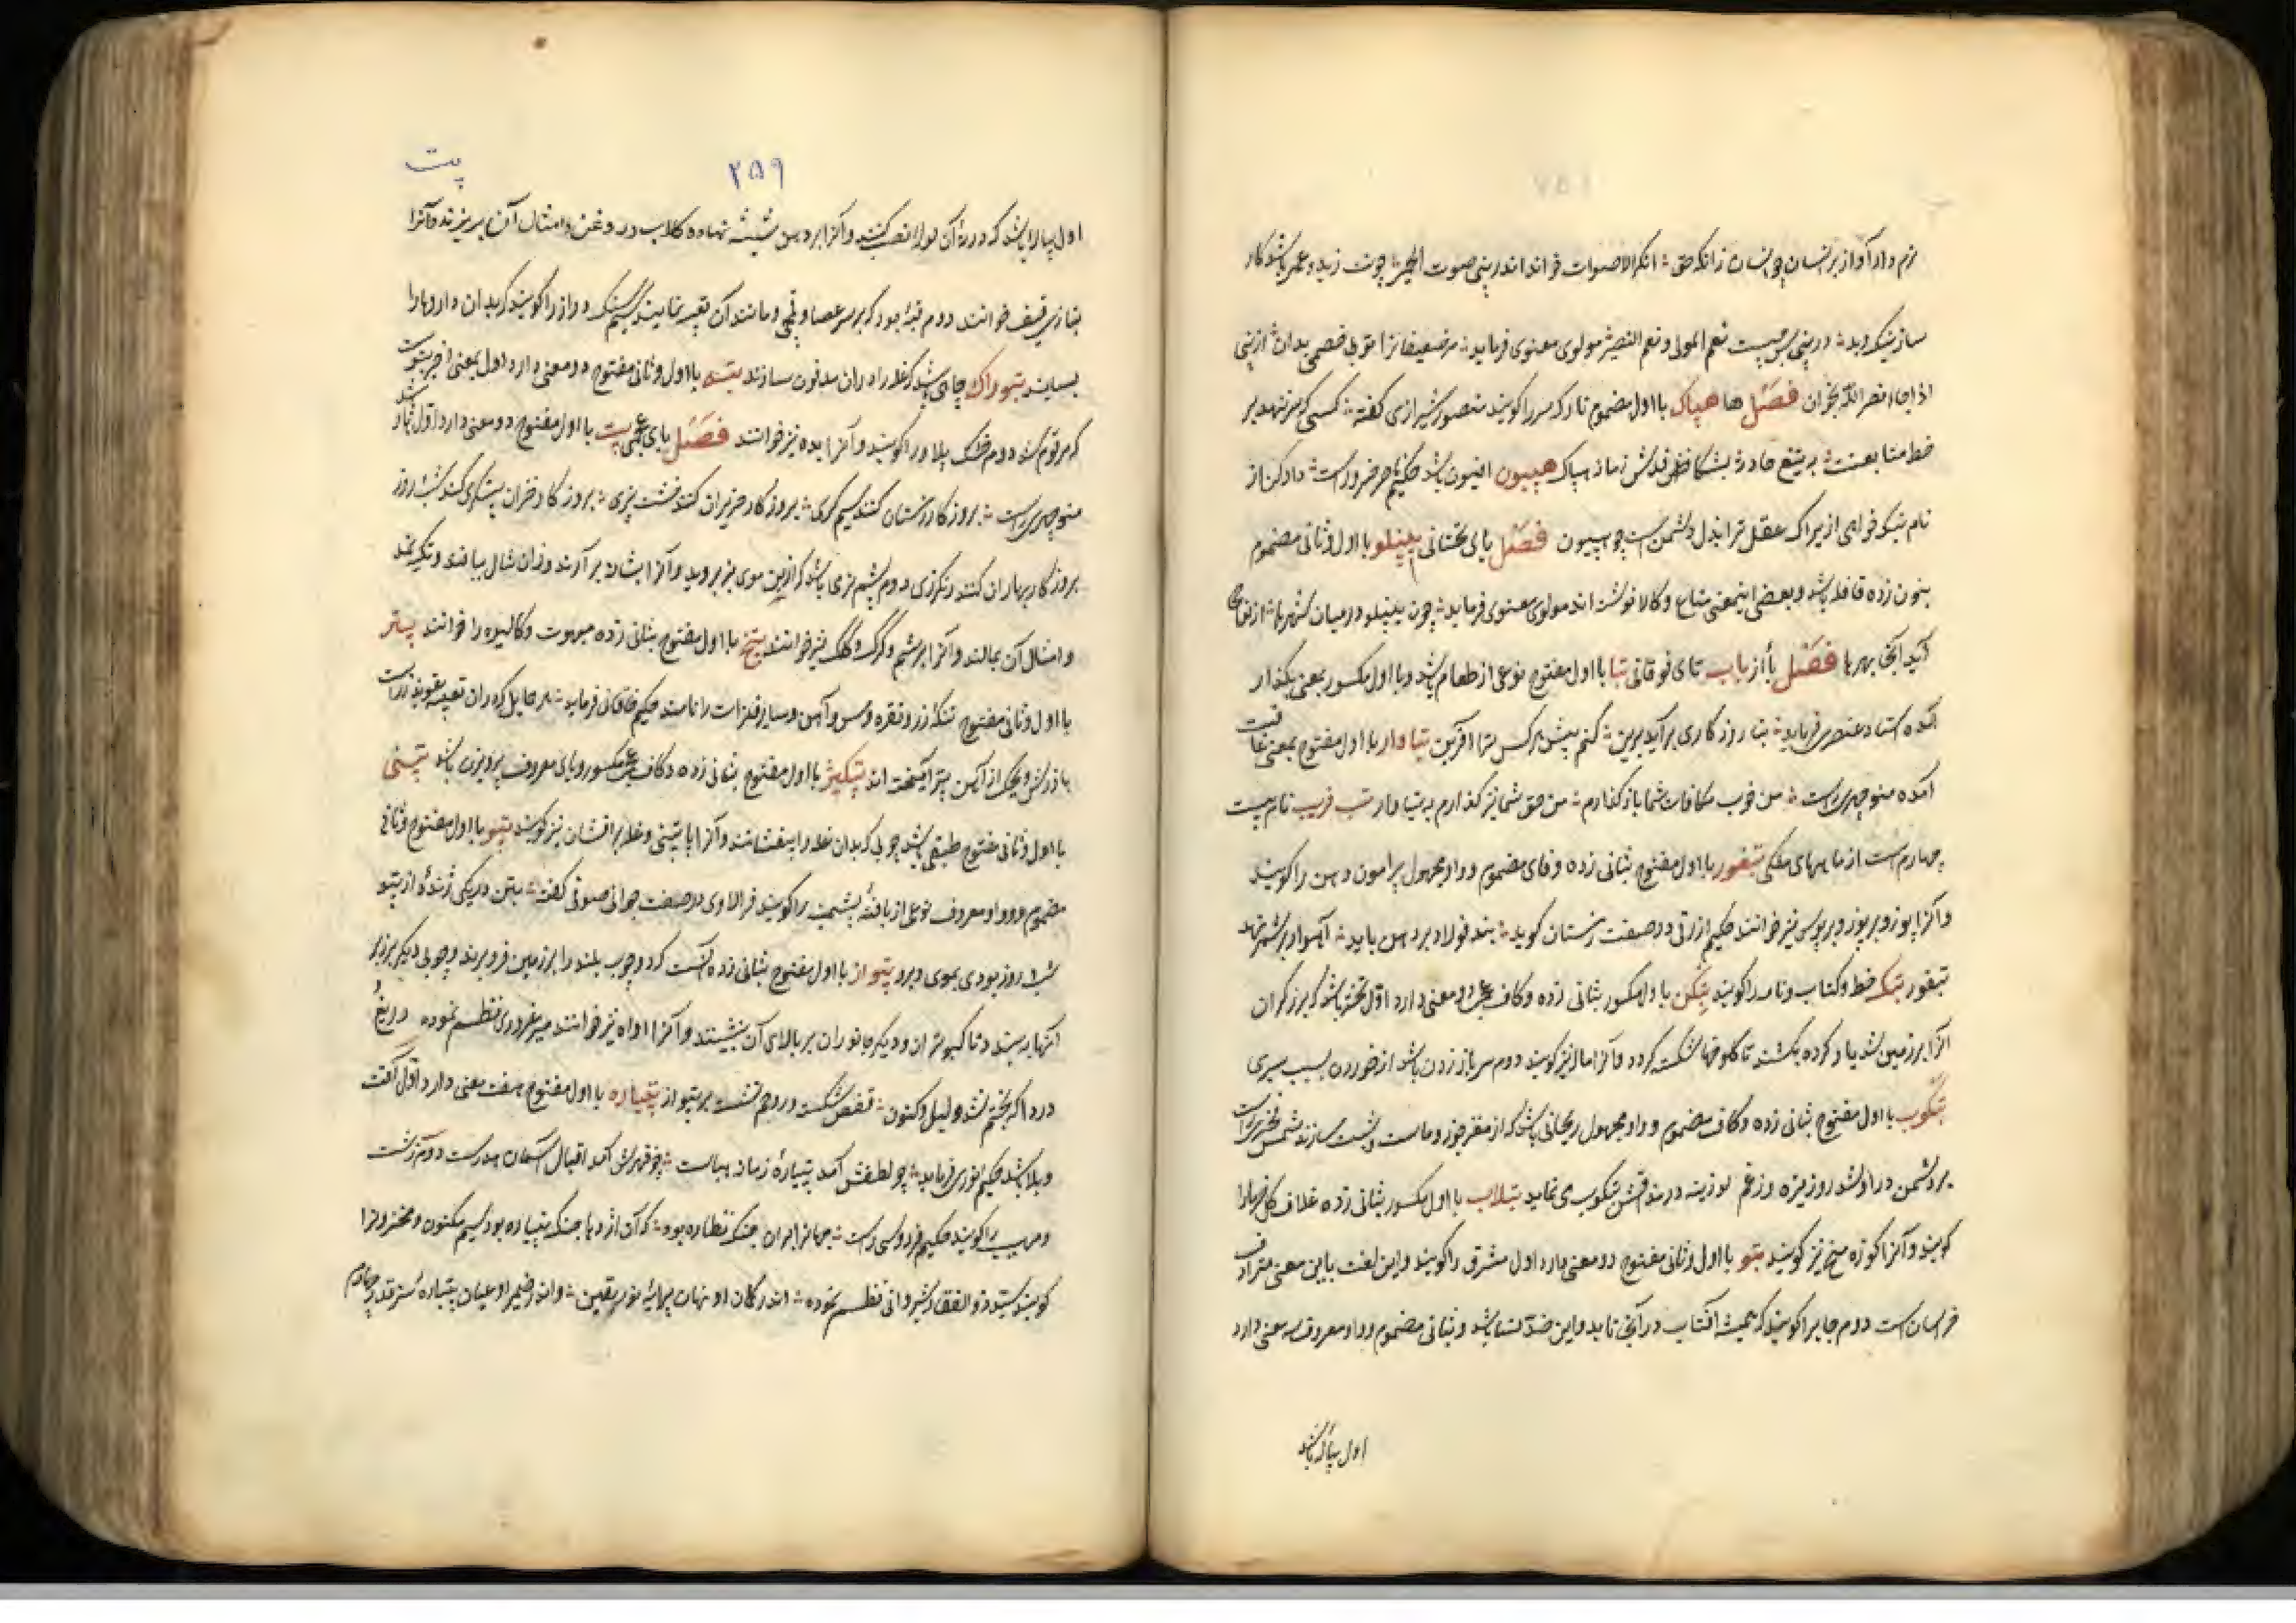 نرم دار آواز بر انسان چو انسان زانکه حق ؞ انکر الاصوات خواند اندر نبی صوت الحمیر ؞ چون زید و عمر باشد کار
ساز نیک و بد ؞ در نبی پس چیست نعم المولی و نعم النصیر ؞ مولوی معنوی فرماید ؞ مر ضعیفانرا تو بی خصمی بدان ؞ از نبی
اذا جاء نصر الله بخوان فصل ها هباک با اول مضموم تارک سر را کویند منصور شیرازی کفته ؞ کسی که سر ننهد بر
خط متابعتت ؞ به تیغ حادثه بشکافدش زمانه هباک هپیون افیون باشد حکیم ناصر خسرو راست ؞ دادکن از
نام نیک خواهی ازیراک عقل ترا بذل دشمن است چو هپیون فصل یای تحتانی یبنلو با اول و ثانی مضموم
بنون زده قافله باشد و بعضی اینمعنی متاع و کالا نوشته اند مولوی معنوی فرماید ؞ چون یبنلو در میان شهرها ؞ از نواحی
آید آنجا بهرها فصل با از باب تای فوقانی تبا با اول مفتوح نوعی از طعام باشد و با اول مکسور بمعنی بکذار
آمده استاد عنصری فرماید ؞ بتا روزکاری برآید برین ؞ کنم پیش هر کس ترا آفرین بتاوار با اول مفتوح بمعنی عاقبت
آمده منوچهری راست ؞ من خوب مکافات شما باز کذارم ؞ من حق شما نیز کذارم به بتاوار تب فریب نام بیست
چهارم است از ماههای ملکی بتفوز با اول مفتوح بثانی زده و فای مضموم و واو مجهول پیرامون دهن را کویند
و آنرا پوز و بریوز و بربوس نیز خوانند حکیم ازرقی در صفت زمستان کوید ؞ بند فولاد بر دهن باید ؞ آهو اد بر شمر نهد
بتفوز بتک خط و کتاب و نامه را کویند بتکن با اول مکسور بثانی زده و کاف عجمی دو معنی دارد اول تخته باشد که برزکران
آنرا بر زمین شد یار کرده بکشند تا کلوخها شکسته کردد و آنرا ماله نیز کویند دوم سر باز زدن باشد از خوردن بسبب سیری
بتکوب با اول مفتوح بثانی زده و کاف مضموم و واو مجهول ریچالی باشد که از مغز جوز و ماست و شبت سازند شمس فخری راست
بر دشمن در او شد روز تیره وز غم لوزینه در مذاقش بتکوب می نماید بتلاب با اول مکسور بثانی زده غلاف کل خرما را
کویند و آنرا کوزه مغ نیز کویند بتو با اول و ثانی مفتوح دو معنی دارد اول مشرق را کویند و این لغت باین معنی مترادف
خراسان است دوم جایرا کویند که همیشه آفتاب در آنجا تابد و این ضد نسا باشد و ثانی مضموم و واو معروف سه معنی دارد
اول پیاله باشد
پت
۲۵۹
اول پیاله باشد که در ته آن لوله نصب کنند و آنرا بر دهن شیشه نهاده کلاب و روغن و امثال آن بریزند و آنرا
بتازی قیف خوانند دوم قبه بود که بر سر عصا و قمچی و مانند آن تعبیه نمایند سیم سنک دراز را کویند که بدان داروها را
بسایند بتوراک چاهی باشد که غله را در آن مدفون سازند بتیه با اول و ثانی مفتوح دو معنی دارد اول بمعنی آخر بتوست
که مرقوم شد دوم خشک پلاو را کویند و آنرا بده نیز خوانند فصل بای عجمی پت با اول مفتوح دو معنی دارد اول آهار باشد
منوچهری راست ؞ بروزکار زمستان کنند سیم کری ؞ بروزکار حزیران کنند خشت پزی ؞ بروزکار خزان پتکری کنند شب و روز
بروزکار بهاران کنند رنکرزی دوم پشم نرمی باشد که از بن موی بز بروید و آنرا بشانه برآرند و از آن شال بافند و تکیه نمد
و امثال آن بمالند و آنرا بزشم و کرک و کلک نیز خوانند پتخ با اول مفتوح بثانی زده مبهوت و کالیوه را خوانند پتر
با اول و ثانی مفتوح تنکه زر و نقره و مس و آهن و سایر فلزات را نامند حکیم خاقانی فرماید ؞ هر حمایل که در آن تعبیه تعویذ زرست
باز رش ویحک از آهن پتر آمیخته اند پتکیز با اول مفتوح بثانی زده و کاف عجمی مکسور و یای معروف پرویزن باشد پتنی
با اول و ثانی مفتوح طبقی باشد چوبی که بدان غله را بیفشانند و آنرا پاتینی و غله بر افشان نیز کویند پتو با اول مفتوح و ثانی
مضموم و واو معروف نوعی از بافته پشمینه را کویند فرالاوی در صفت جوانی صوفی کفته ؞ بتن در یکی ژنده از پتو
شب و روز بودی بموی و برو پتواز با اول مفتوح بثانی زده آنست که دو چوب بلند را بر زمین فرو برند و چوبی دیکر بر زبر
آنها ببندند تا کبوتران و دیکر جانوران بر بالای آن بنشینند و آنرا آواه نیز خوانند میر غروری نظم نموده ؞ دریغ و
درد اکه بختم نشد دلیل و کنون ؞ قفص شکست و روحم نشست بر پتواز پتیاره با اول مفتوح هفت معنی دارد اول آفت
و بلا باشد حکیم انوری فرماید ؞ چو لطفش آمد پتیاره زمانه هباست ؞ چو قهرش آمد اقبال آسمان هدرست دوم زشت
و مهیب را کویند حکیم فردوسی راست ؞ جهانرا بران جنک نظاره بود ؞ که آن اژدها جنک پتیاره بود سیم مکنون و مخزونرا
کویند سید ذوالفقار شیروانی نظم نموده ؞ اندر کمان او نهان پیرایه نور یقین ؞ و اندر ضمیر او عیان پتیاره سر قدر چهارم